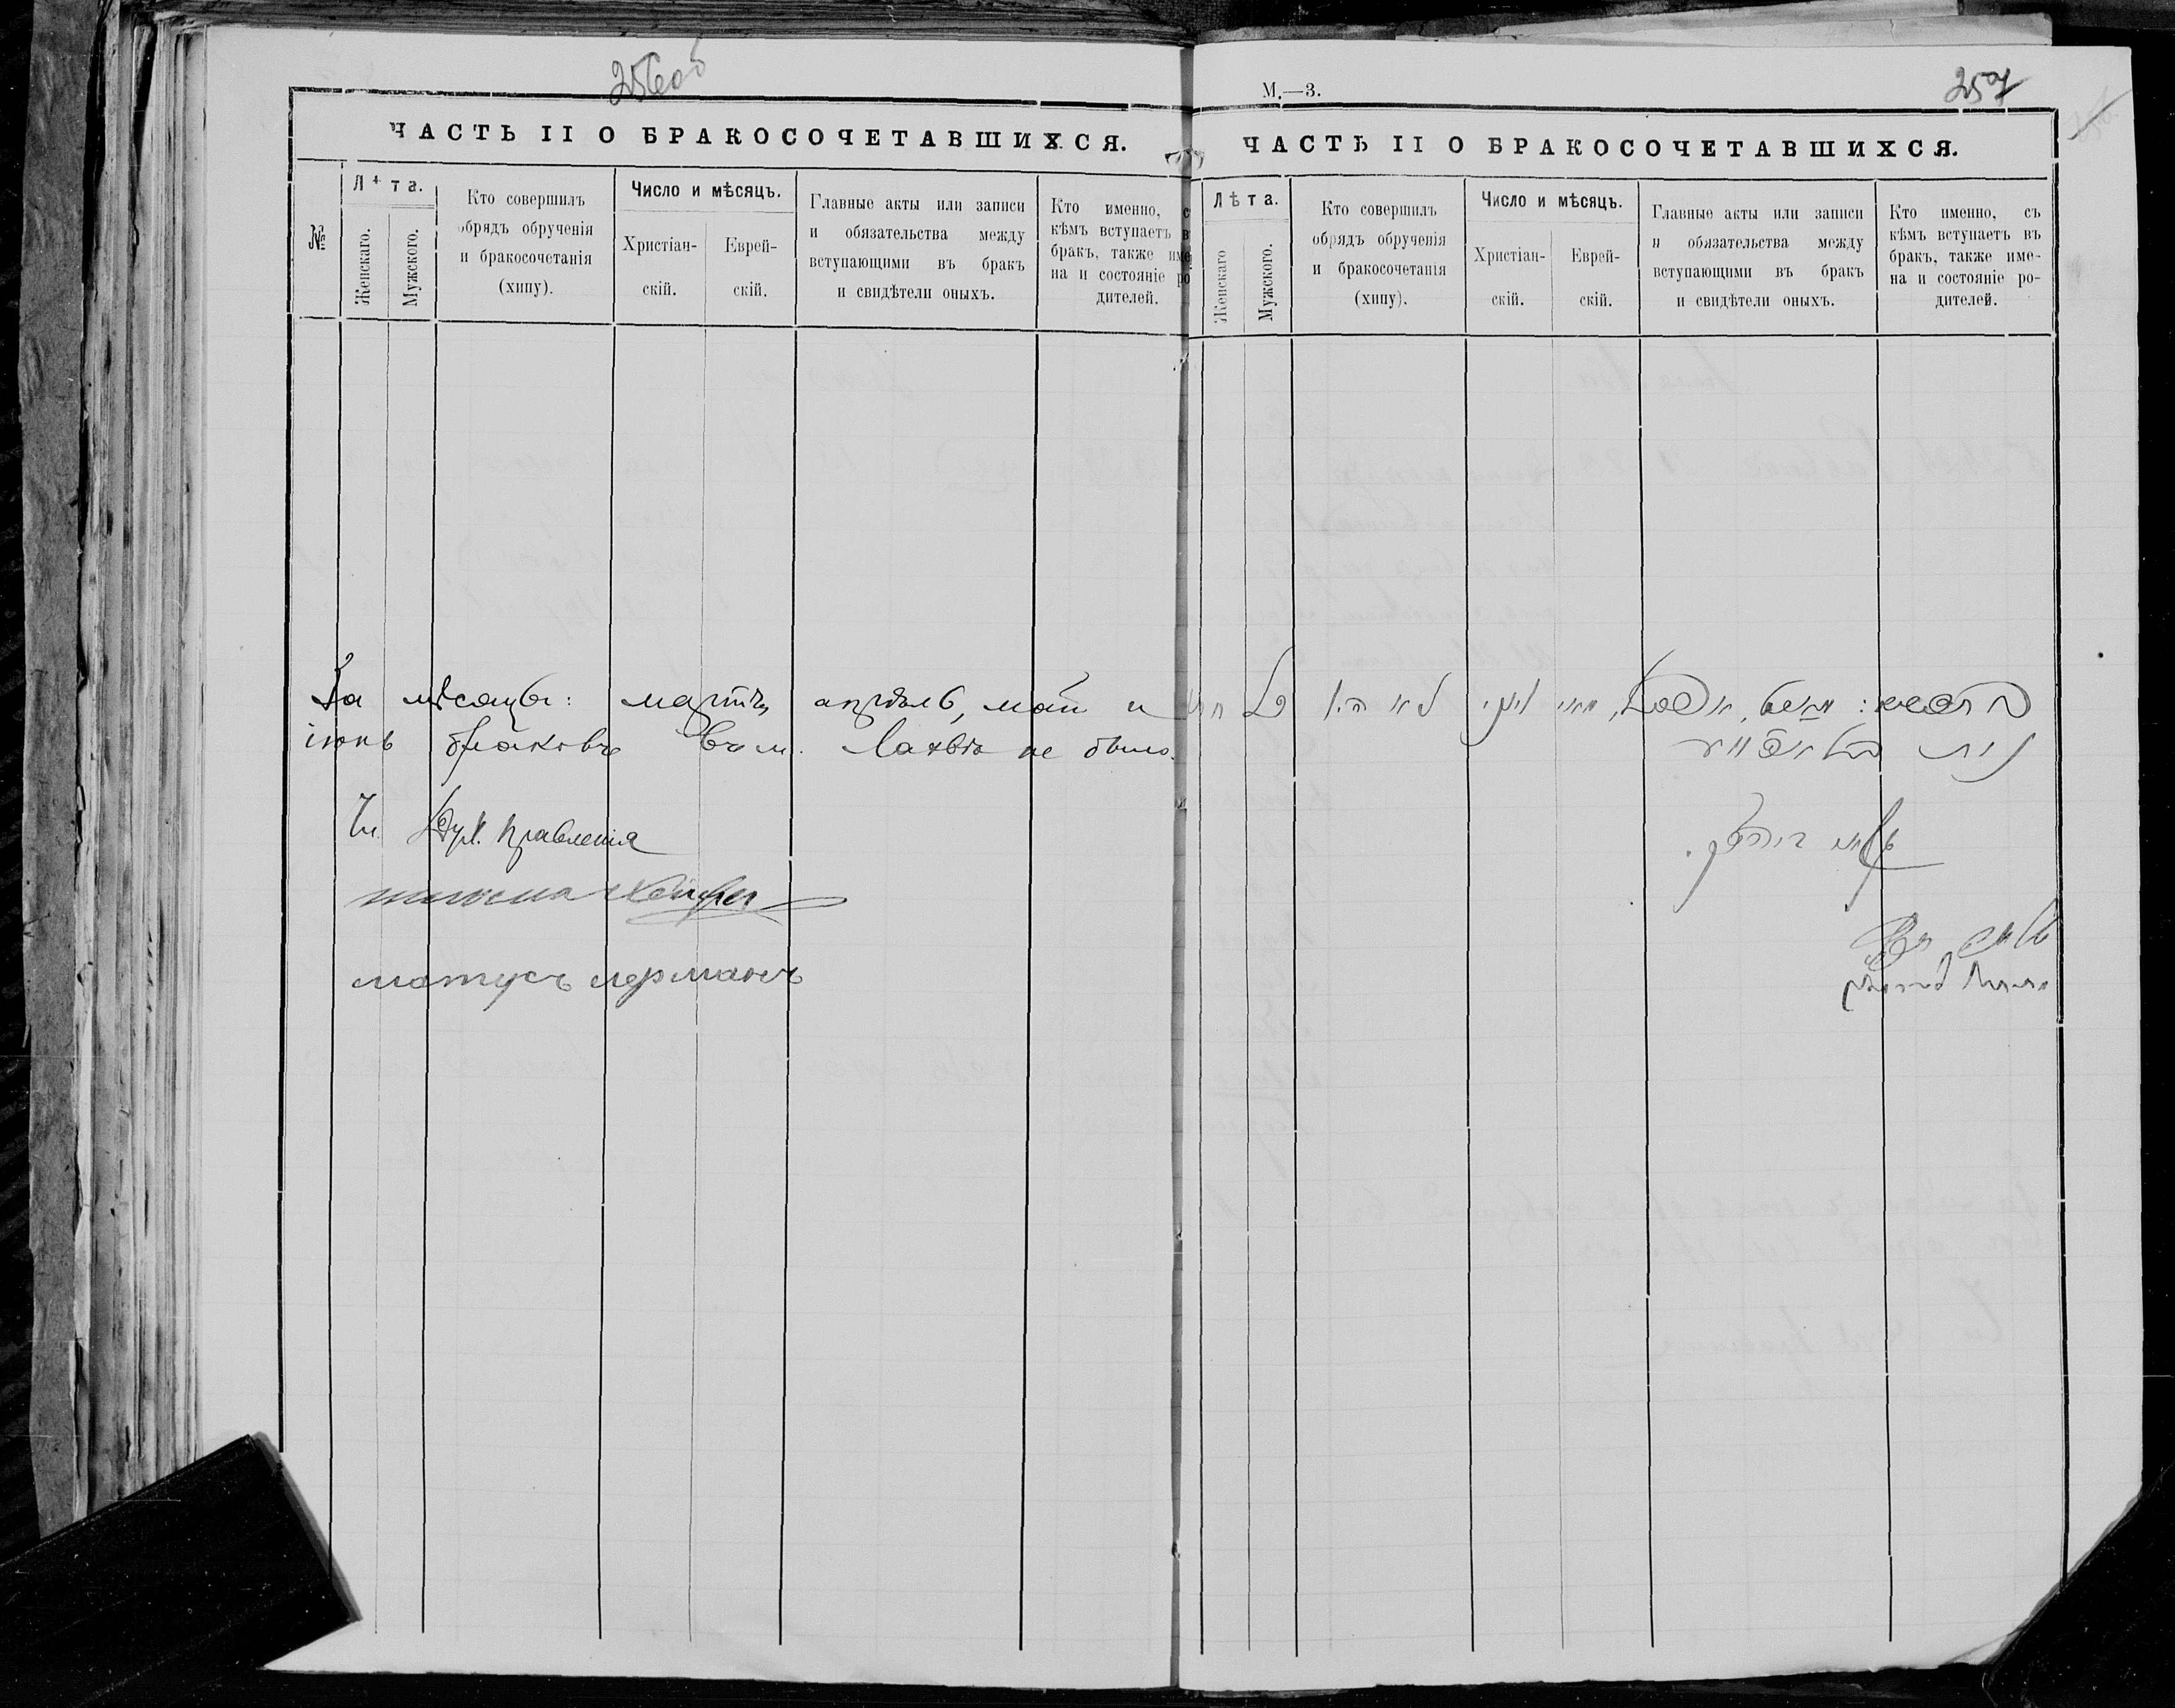 256об
ЧАСТЬ II О БРАКОСОЧЕТАВШИХСЯ.
№
Лѣта.
Женскаго.
Мужского.
Кто совершилъ
обрядъ обрученія
и бракосочетанія
(хипу).
Число и мѣсяцъ.
Христіан-
скій.
Еврей-
скій.
Главные акты или записи
и обязательства между
вступающими въ бракъ
и свидѣтели оныхъ.
Кто именно, с
кѣмъ вступаетъ в
бракъ, также име
на и состояніе ро
дителей.
За мѣсяцы: мартъ, апрѣль, май и
іюнь браковъ въ м. Лахвѣ не было.
Чл. Дух. Правленія
матусъ лерманъ
М.—3.
257
ЧАСТЬ II О БРАКОСОЧЕТАВШИХСЯ.
Лѣта.
Женскаго
Мужского.
Кто совершилъ
обрядъ обрученія
и бракосочетанія
(хипу).
Число и мѣсяцъ.
Христіан-
скій.
Еврей-
скій.
Главные акты или записи
и обязательства между
вступающими въ бракъ
и свидѣтели оныхъ.
Кто именно, съ
кѣмъ вступаетъ въ
бракъ, также име-
на и состояніе ро-
дителей.
מאי יוני לא היו